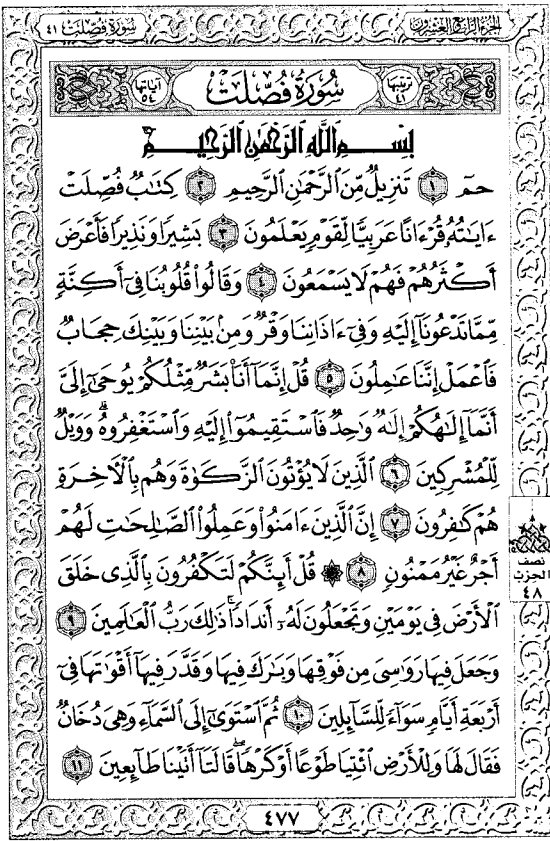 سُورَةُ فُصِّلَتْ ٤١
الجُزْءُ الرَّابِعُ وَالعِشْرُونَ
ترتيبها ٤١
سُورَةُ فُصِّلَتْ
آياتها ٥٤
بِسْمِ ٱللَّهِ ٱلرَّحْمَٰنِ ٱلرَّحِيمِ
حمٓ ١ تَنزِيلٌ مِّنَ ٱلرَّحْمَٰنِ ٱلرَّحِيمِ ٢ كِتَٰبٌ فُصِّلَتْ
ءَايَٰتُهُۥ قُرْءَانًا عَرَبِيًّا لِّقَوْمٍ يَعْلَمُونَ ٣ بَشِيرًا وَنَذِيرًا فَأَعْرَضَ
أَكْثَرُهُمْ فَهُمْ لَا يَسْمَعُونَ ٤ وَقَالُوا۟ قُلُوبُنَا فِىٓ أَكِنَّةٍ
مِّمَّا تَدْعُونَآ إِلَيْهِ وَفِىٓ ءَاذَانِنَا وَقْرٌ وَمِنۢ بَيْنِنَا وَبَيْنِكَ حِجَابٌ
فَٱعْمَلْ إِنَّنَا عَٰمِلُونَ ٥ قُلْ إِنَّمَآ أَنَا۠ بَشَرٌ مِّثْلُكُمْ يُوحَىٰٓ إِلَىَّ
أَنَّمَآ إِلَٰهُكُمْ إِلَٰهٌ وَٰحِدٌ فَٱسْتَقِيمُوٓا۟ إِلَيْهِ وَٱسْتَغْفِرُوهُ ۗ وَوَيْلٌ
لِّلْمُشْرِكِينَ ٦ ٱلَّذِينَ لَا يُؤْتُونَ ٱلزَّكَوٰةَ وَهُم بِٱلْءَاخِرَةِ
هُمْ كَٰفِرُونَ ٧ إِنَّ ٱلَّذِينَ ءَامَنُوا۟ وَعَمِلُوا۟ ٱلصَّٰلِحَٰتِ لَهُمْ
أَجْرٌ غَيْرُ مَمْنُونٍ ٨ ۞ قُلْ أَئِنَّكُمْ لَتَكْفُرُونَ بِٱلَّذِى خَلَقَ
ٱلْأَرْضَ فِى يَوْمَيْنِ وَتَجْعَلُونَ لَهُۥٓ أَندَادًا ۚ ذَٰلِكَ رَبُّ ٱلْعَٰلَمِينَ ٩
وَجَعَلَ فِيهَا رَوَٰسِىَ مِن فَوْقِهَا وَبَٰرَكَ فِيهَا وَقَدَّرَ فِيهَآ أَقْوَٰتَهَا فِىٓ
أَرْبَعَةِ أَيَّامٍ سَوَآءً لِّلسَّآئِلِينَ ١٠ ثُمَّ ٱسْتَوَىٰٓ إِلَى ٱلسَّمَآءِ وَهِىَ دُخَانٌ
فَقَالَ لَهَا وَلِلْأَرْضِ ٱئْتِيَا طَوْعًا أَوْ كَرْهًا قَالَتَآ أَتَيْنَا طَآئِعِينَ ١١
نصف
الحزب
٤٨
٤٧٧